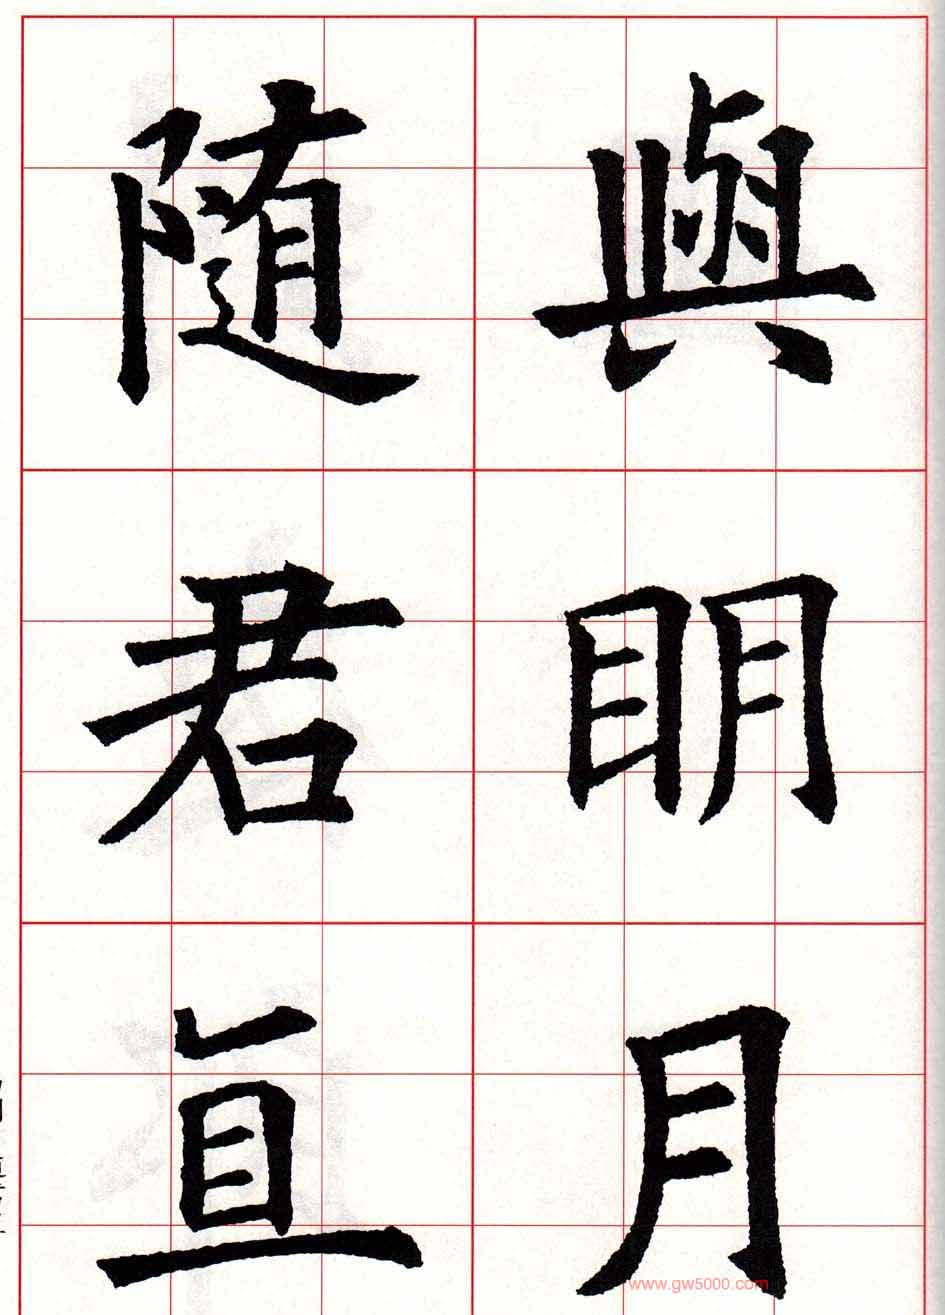 與明月
随君直
www.gw5000.com